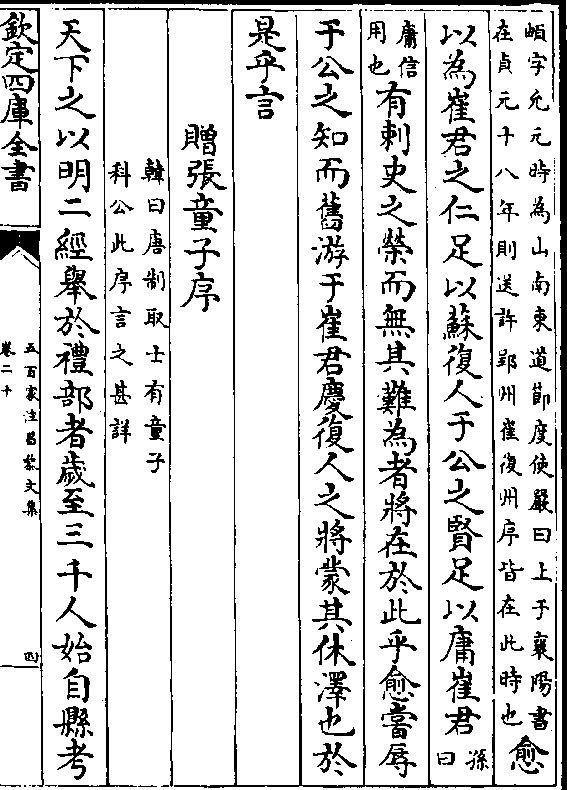 頔字允元時為山南東道節度使嚴曰上于襄陽書
在貞元十八年則送許郢州崔復州序皆在此時也
愈
以為崔君之仁足以蘇復人于公之賢足以庸崔君
孫曰
庸信
用也
有刺史之榮而無其難為者將在於此乎愈嘗辱
于公之知而舊游于崔君慶復人之將蒙其休澤也於
是乎言
贈張童子序
韓曰唐制取士有童子
科公此序言之甚詳
天下之以明二經舉於禮部者歲至三千人始自縣考
欽定四庫全書
五百家注昌黎文集
卷二十
四